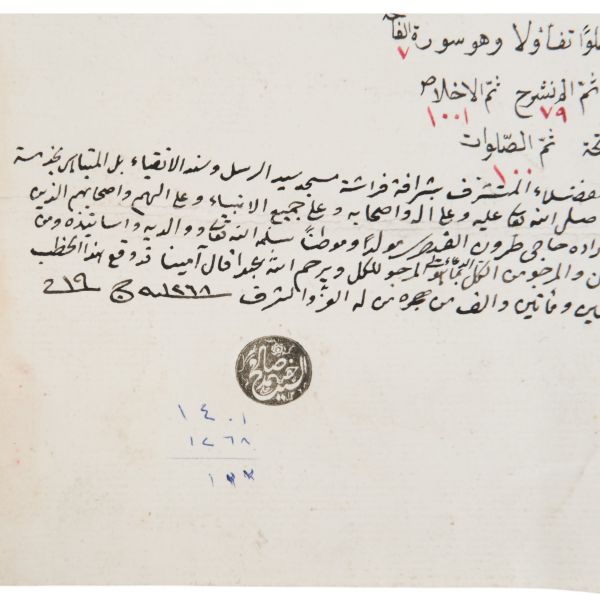 تفاؤلا وهو سورة الفاتحة
٧
ثم الانشرح ثم الاخلاص
٧٩ ١٠٠١
ثم الصلوات
١٠٠
المتشرف بشرافة فراشة مسجد سيد الرسل وسند الاتقياء بل المتباهى بخدمة
صلى الله تعالى عليه وعلى اله واصحابه وعلى جميع الانبياء وعلى الهم واصحابهم الذين
حاجى طرون القيصرى مولدا وموطنا سلمه الله تعالى ووالديه واساتيذه ومن
والمرجو من الكل المرجو للكل ويرحم الله عبدا قال آمينا قد وقع هذا
ومأتين والف من هجرة من له العز والشرف ١٢٦٨سنه ج ١٩
السيد
صالح
١٤٠١
١٢٦٨
١٣٣